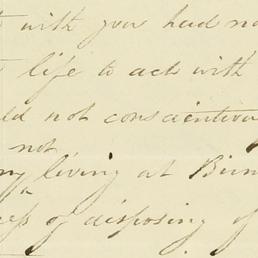 with you had no
life to act with
not conscientiou
not
living at Birm
of disposing of